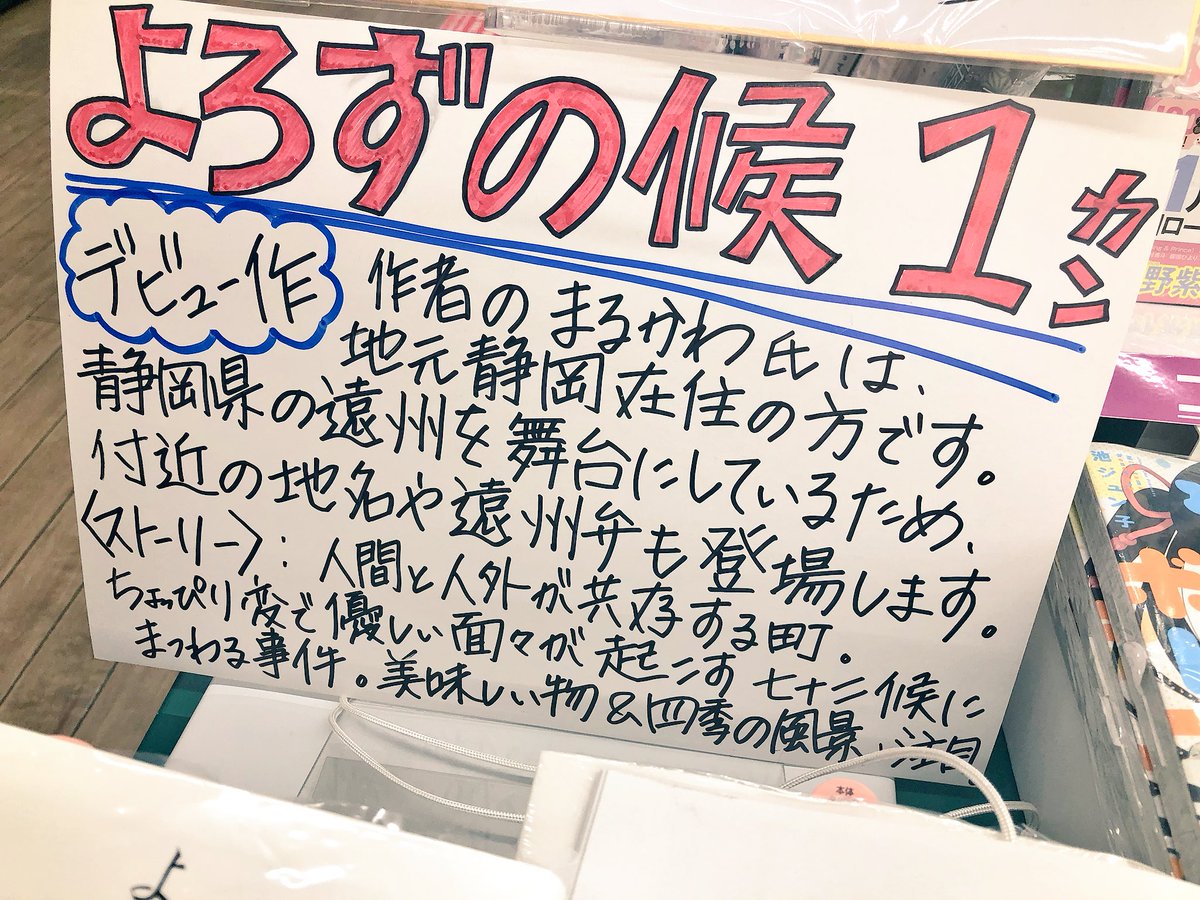 よろずの候 1カン
デビュー作
作者のまるかわ氏は、
地元静岡在住の方です。
静岡県の遠州を舞台にしているため、
付近の地名や遠州弁も登場します。
〈ストーリー〉:人間と人外が共存する町。
ちょっぴり変で優しい面々が起こす七十二候に
まつわる事件。美味しい物&四季の風景に注目
本体
よ
野紫